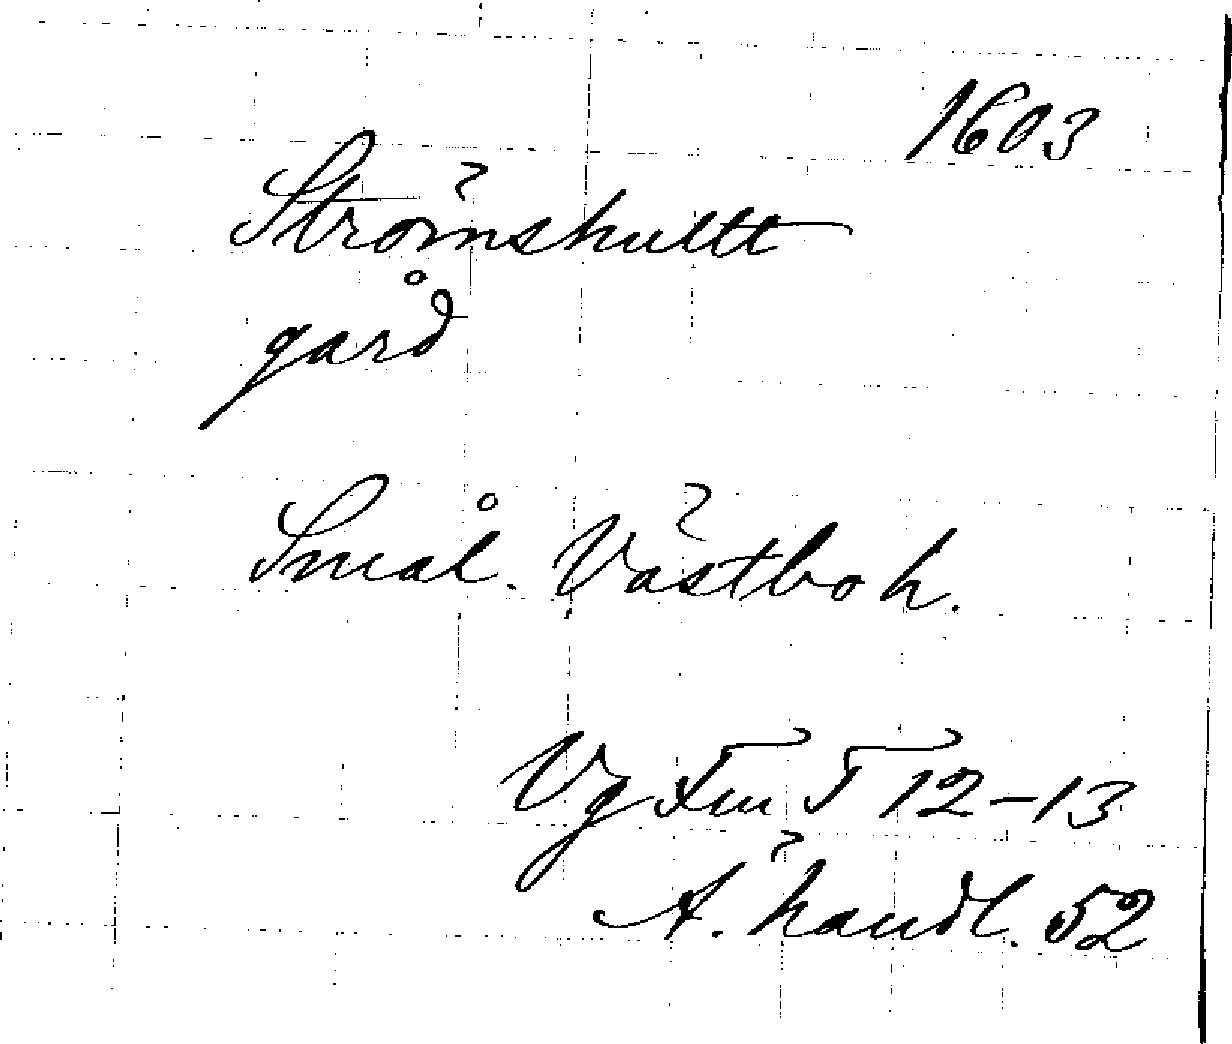 1603
Strömshultt
gård
Smål. Västbo h.
Vg Fm T 12-13
Ä. handl. 52